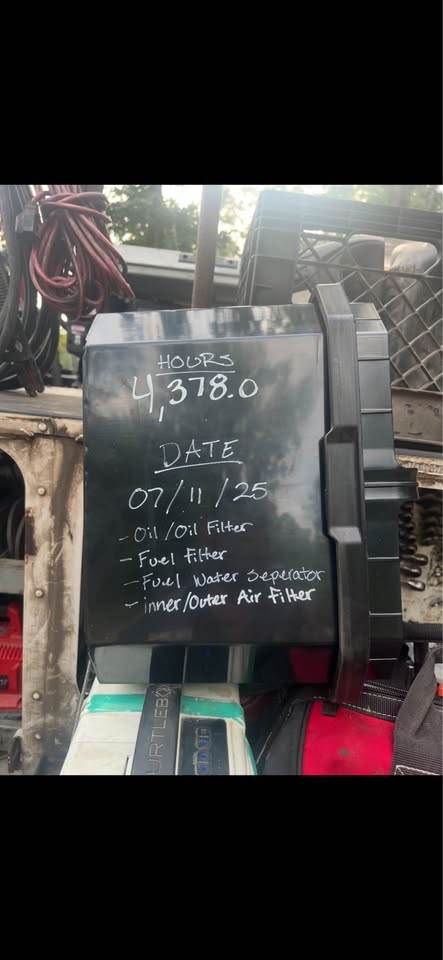 HOURS
4,378.0
DATE
07/11/25
- Oil/Oil Filter
- Fuel Filter
- Fuel Water Seperator
- inner/Outer Air Filter
URTLEBO